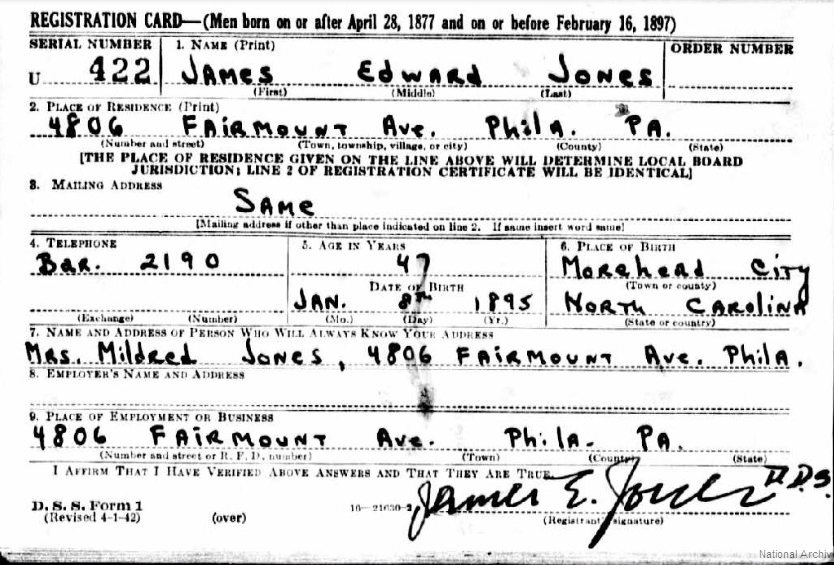 REGISTRATION CARD—(Men born on or after April 28, 1877 and on or before February 16, 1897)
SERIAL NUMBER 1. NAME (Print) ORDER NUMBER
U 422 JAMES EDWARD JONES
(First) (Middle) (Last)
2. PLACE OF RESIDENCE (Print)
4806 FAIRMOUNT AVE. PHILA. PA.
(Number and street) (Town, township, village, or city) (County) (State)
[THE PLACE OF RESIDENCE GIVEN ON THE LINE ABOVE WILL DETERMINE LOCAL BOARD
JURISDICTION; LINE 2 OF REGISTRATION CERTIFICATE WILL BE IDENTICAL]
3. MAILING ADDRESS
SAME
[Mailing address if other than place indicated on line 2. If same insert word same]
4. TELEPHONE 5. AGE IN YEARS 6. PLACE OF BIRTH
BAR. 2190 47 MOREHEAD CITY
DATE OF BIRTH (Town or county)
JAN. 8TH 1895 NORTH CAROLINA
(Exchange) (Number) (Mo.) (Day) (Yr.) (State or country)
7. NAME AND ADDRESS OF PERSON WHO WILL ALWAYS KNOW YOUR ADDRESS
MRS. MILDRED JONES, 4806 FAIRMOUNT AVE. PHILA.
8. EMPLOYER'S NAME AND ADDRESS
9. PLACE OF EMPLOYMENT OR BUSINESS
4806 FAIRMOUNT AVE. PHILA. PA.
(Number and street or R. F. D. number) (Town) (County) (State)
I AFFIRM THAT I HAVE VERIFIED ABOVE ANSWERS AND THAT THEY ARE TRUE.
James E. Jones D.D.S.
D. S. S. Form 1
(Revised 4-1-42) (over) 16—21630-2 (Registrant signature)
National Archiv